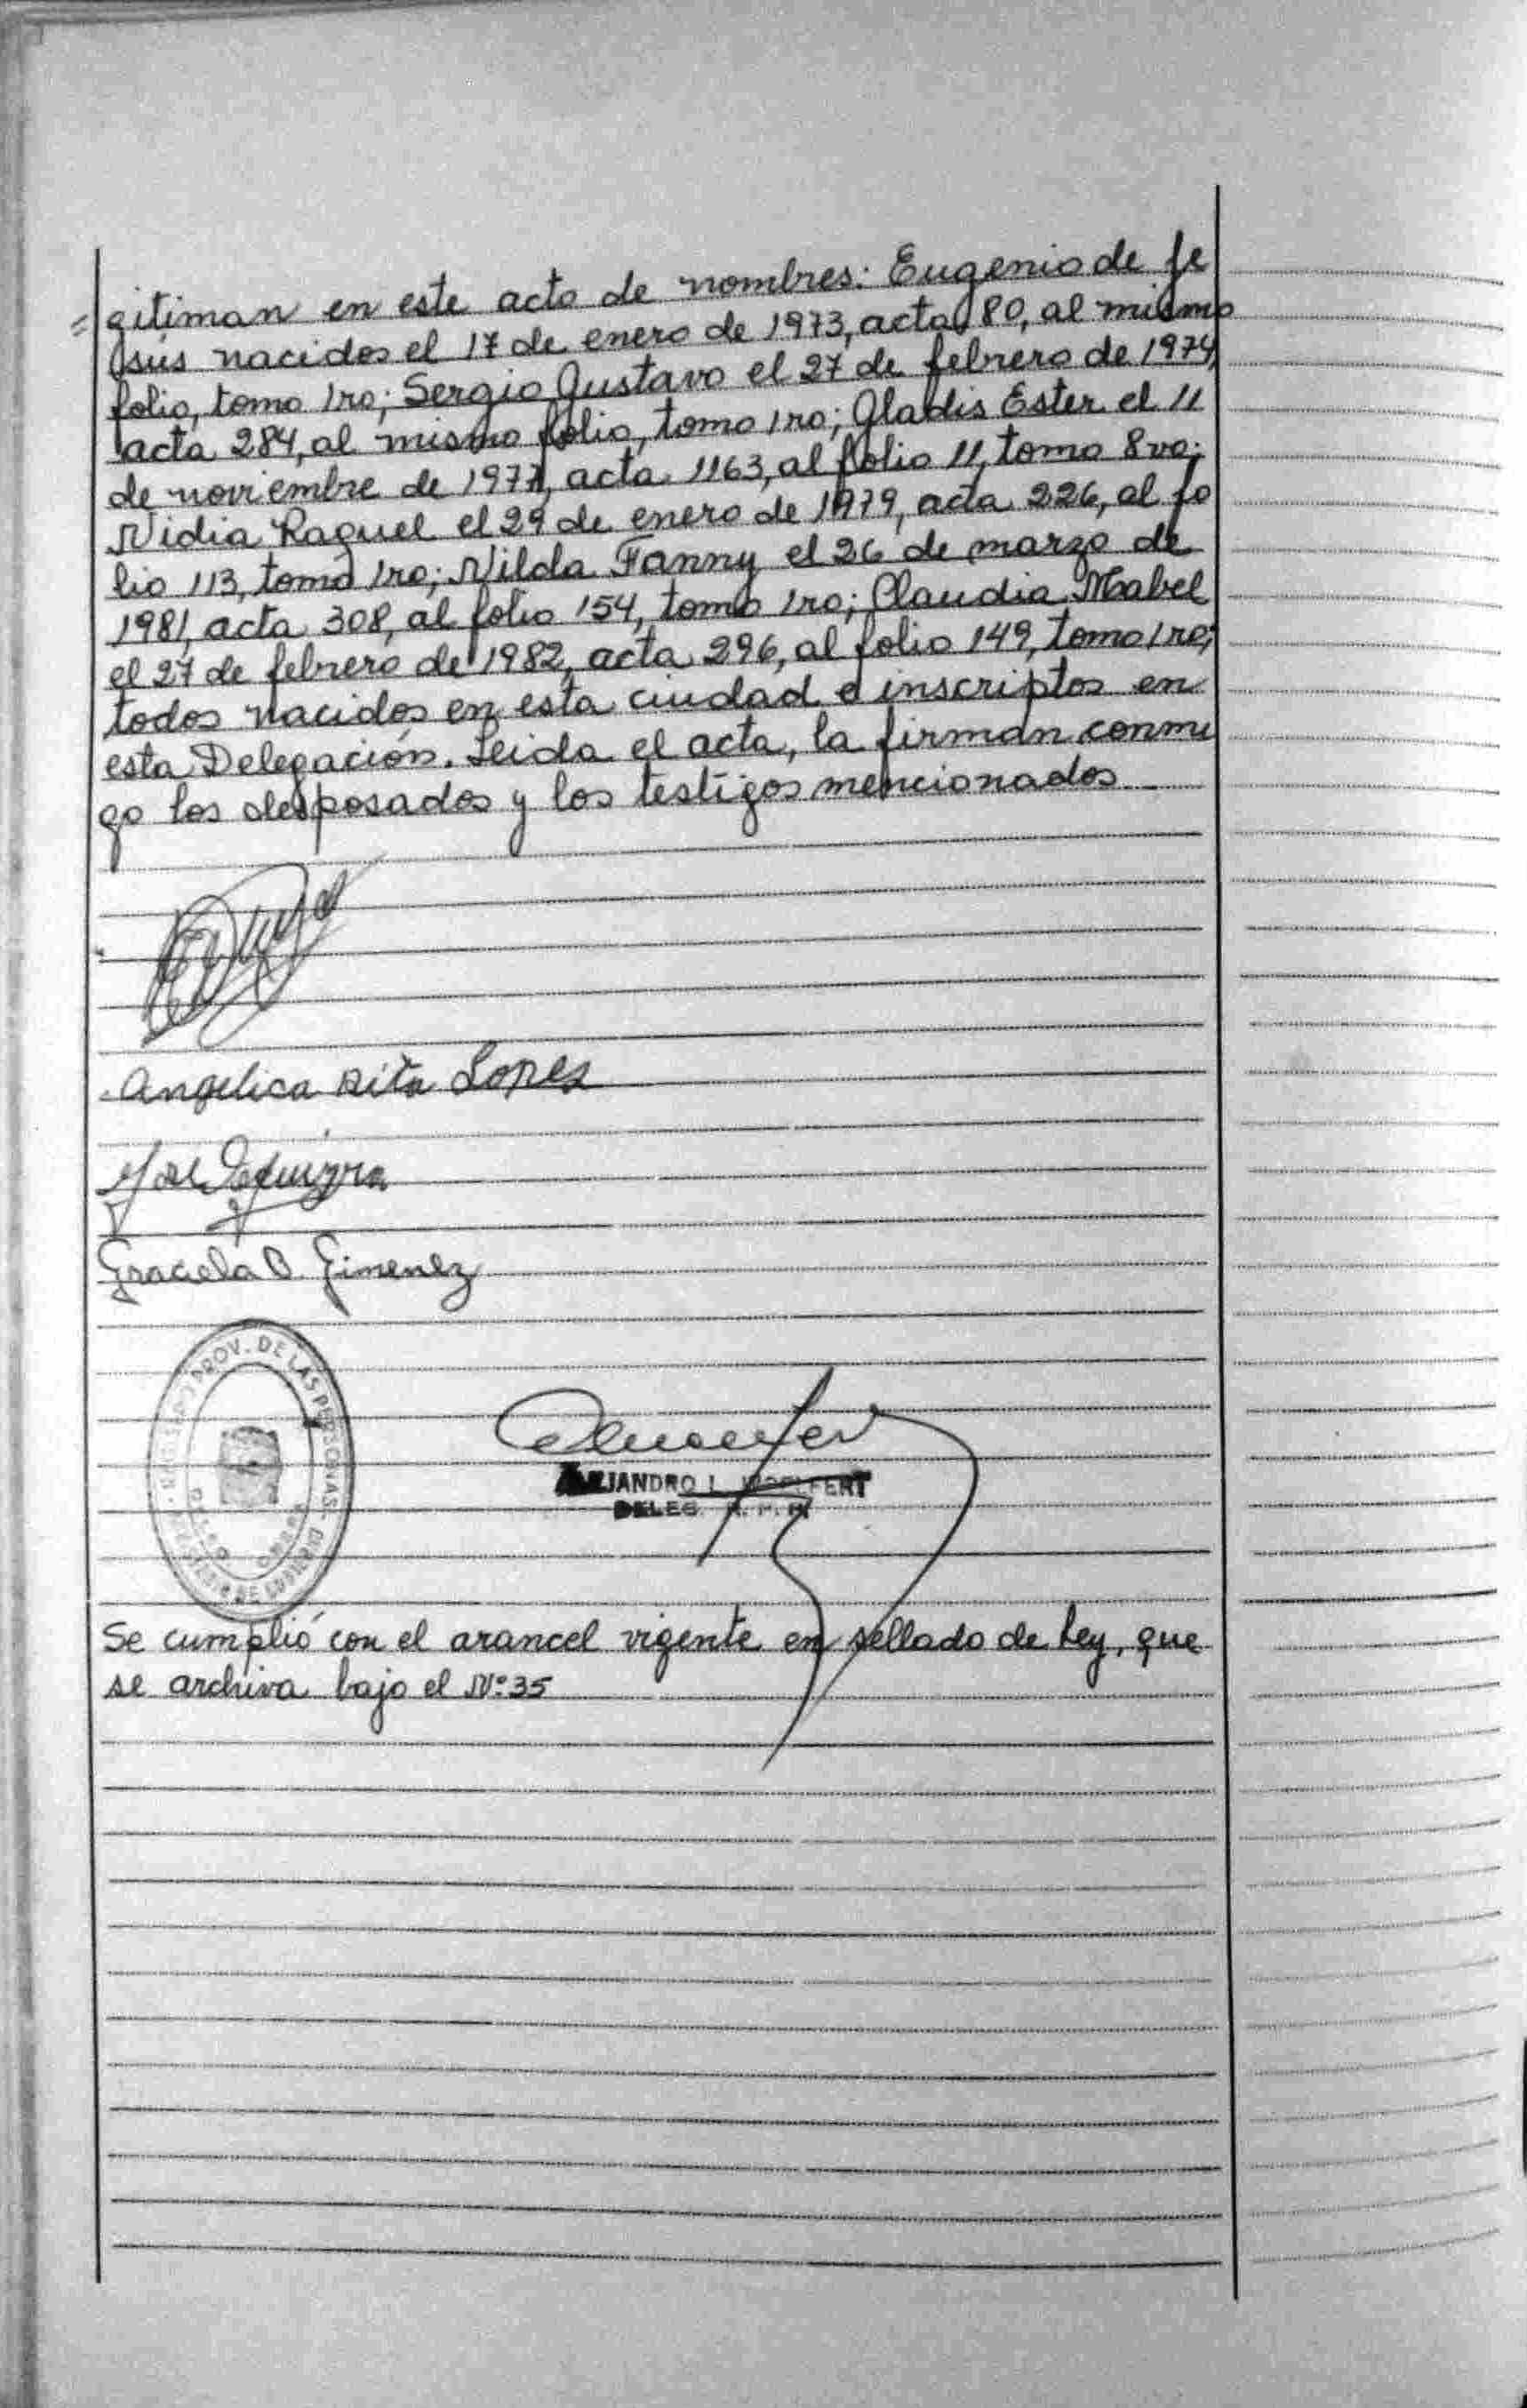 =gitiman en este acto de nombres: Eugenio de Je
sús nacidos el 17 de enero de 1973, acta 80, al mismo
folio, tomo 1ro; Sergio Gustavo el 27 de febrero de 1974,
acta 284, al mismo folio, tomo 1ro; Gladis Ester el 11
de noviembre de 1977, acta 1163, al folio 11, tomo 8vo;
Nidia Raquel el 29 de enero de 1979, acta 226, al fo
lio 113, tomo 1ro; Nilda Fanny el 26 de marzo de
1981, acta 308, al folio 154, tomo 1ro; Claudia Mabel
el 27 de febrero de 1982, acta 296, al folio 149, tomo 1ro;
todos nacidos en esta ciudad e inscriptos en
esta Delegación. Leida el acta, la firman conmi
go los desposados y los testigos mencionados
Angelica Rita Lopes
Graciela B. Gimenez
PROV. DE LAS PERSONAS
ALEJANDRO L. WOELFERT
DELEG. R. P. P.
Se cumplió con el arancel vigente en sellado de Ley, que
se archiva bajo el Nº 35